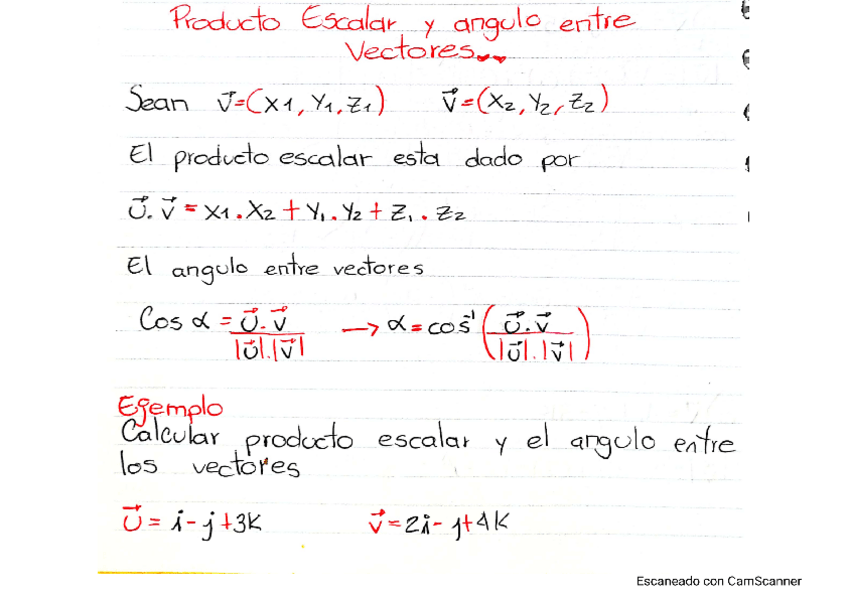 Producto Escalar y angulo entre
Vectores...
Sean v⃗=(x1, y1, z1) v⃗=(x2, y2, z2)
El producto escalar esta dado por
u⃗.v⃗ = x1.x2 + y1.y2 + z1.z2
El angulo entre vectores
Cos α = u⃗.v⃗ / |u⃗|.|v⃗| → α = cos⁻¹ (u⃗.v⃗ / |u⃗|.|v⃗|)
Ejemplo
Calcular producto escalar y el angulo entre
los vectores
u⃗ = i - j + 3k v⃗ = 2i - j + 4k
Escaneado con CamScanner